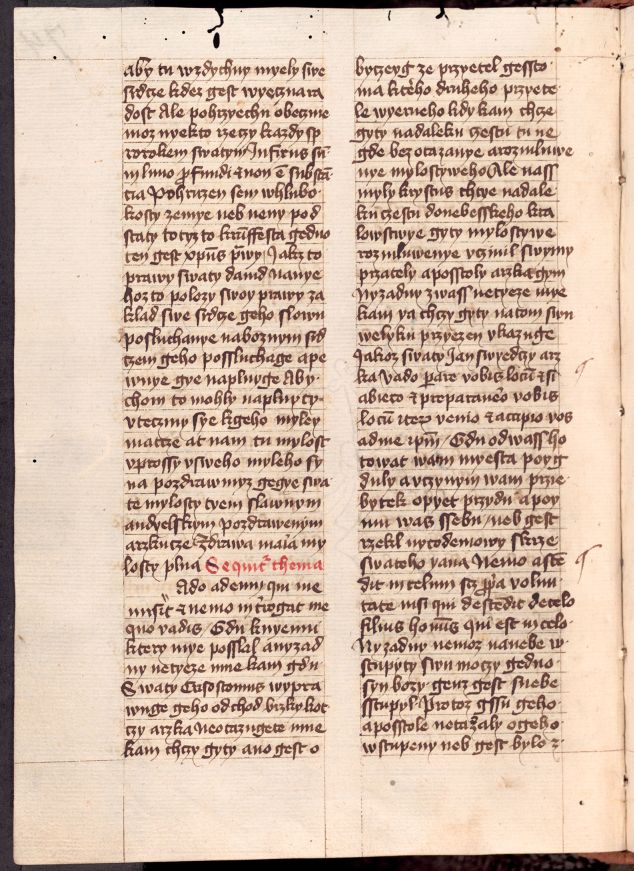 aby tu wzdychny myely swe
srdcze kdez gest wyeczna ra
dost Ale pohrzyechu obeczne
moz nyekto rzeczy kazdy sp
rorokem swatym Infixus sū
in limo ꝓfundi et non ē substā
cia Pohruzen sem whlubo
kosty zemye neb neny pod
staty totyz to krūffesta gedno
ten gest xpūs ꝑwy Jakz to
prawy swaty dauid Nanye
hoz to polozy swoy prawy za
klad swe srdcze geho slown
posluchanye naboznym srd
czem geho possluchage a pe
wnye gye naplnyge Aby
chom to mohly naplny ty
vteczmy sye kgeho myley
matcze at nam tu mylost
vprossy vsweho myleho sy
na pozdrawmyz gegye swa
te mylosty tyem slawnym
andyelskym pozdrawenym
arzkucze Zdrawa maia my
losty plna Sequitᷣ thema
Ado ad eum qui me
misit et nemo int̄rogat me
quo vadis Gdu knyemu
ktery mye posslal a nyzad
ny netyeze mne kam gdu
Swaty Crisostomus wypra
wuge geho odchod brzky kot
czy arzka Neotazugete mne
kam chczy gyty ano gest o
byczeyg ze przyetel gessto
ma ktěho druheho przyete
le wyerneho kdy kam chcze
gyty nadaleku czestu tu ne
gde bez otazanye a rozmluwe
nye mylostyweho Ale nass
myly krystus chtye nadale
ku czestu donebesskeho kra
lowstwye gyty mylostywe
rozmluwenye vczinil swymy
przately apposstoly arzka gym
Nyzadny zwass netyeze mye
kam ya chczy gyty natom swu
welyku przyezen vkazuge
Jakoz swaty Jan swyedczy arz
ka Vado ꝑare vobis locū et si
abiero et preparauero vobis
locū iterū venio et accipio vos
ad me ipm̄ Gdu od wass ho
towat wam myesta poyg
duly a vczynym wam prze
bytek opyet przydu a poy
mu was ssebu neb gest
rzekl nycodemowy skrze
swateho yana Nemo ascē
dit in celum scꝫ ꝓpa volun
tate nisi qui descēdit de celo
filius homīs qui est in celo
Nyzadny nemoz na nebe w
stupyty swu moczy gedno
syn bozy genz gest snebe
sstupyl Protoz gssu geho
aposstole netazaly o geho
wstupeny neb gest bylo z